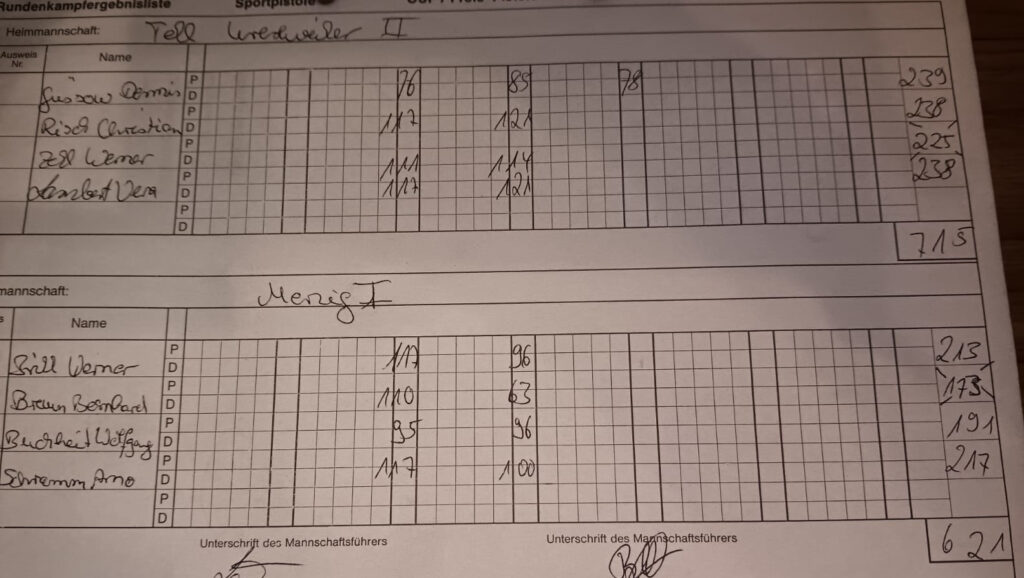 Rundenkampfergebnisliste Sportpistole
Heimmannschaft: Tell II
Ausweis Nr. Name
P 76 85 78 239
D
Risch Christian P D 117 121 238
Zell Werner P D 111 114 225
Lambert Vera P D 117 121 238
P
D
715
mannschaft: Merzig I
Name
Brill Werner P D 117 96 213
Braun Bernhard P D 110 63 173
Buchheit Wolfgang P D 95 96 191
Schramm Arno P D 117 100 217
P
D
621
Unterschrift des Mannschaftsführers Unterschrift des Mannschaftsführers